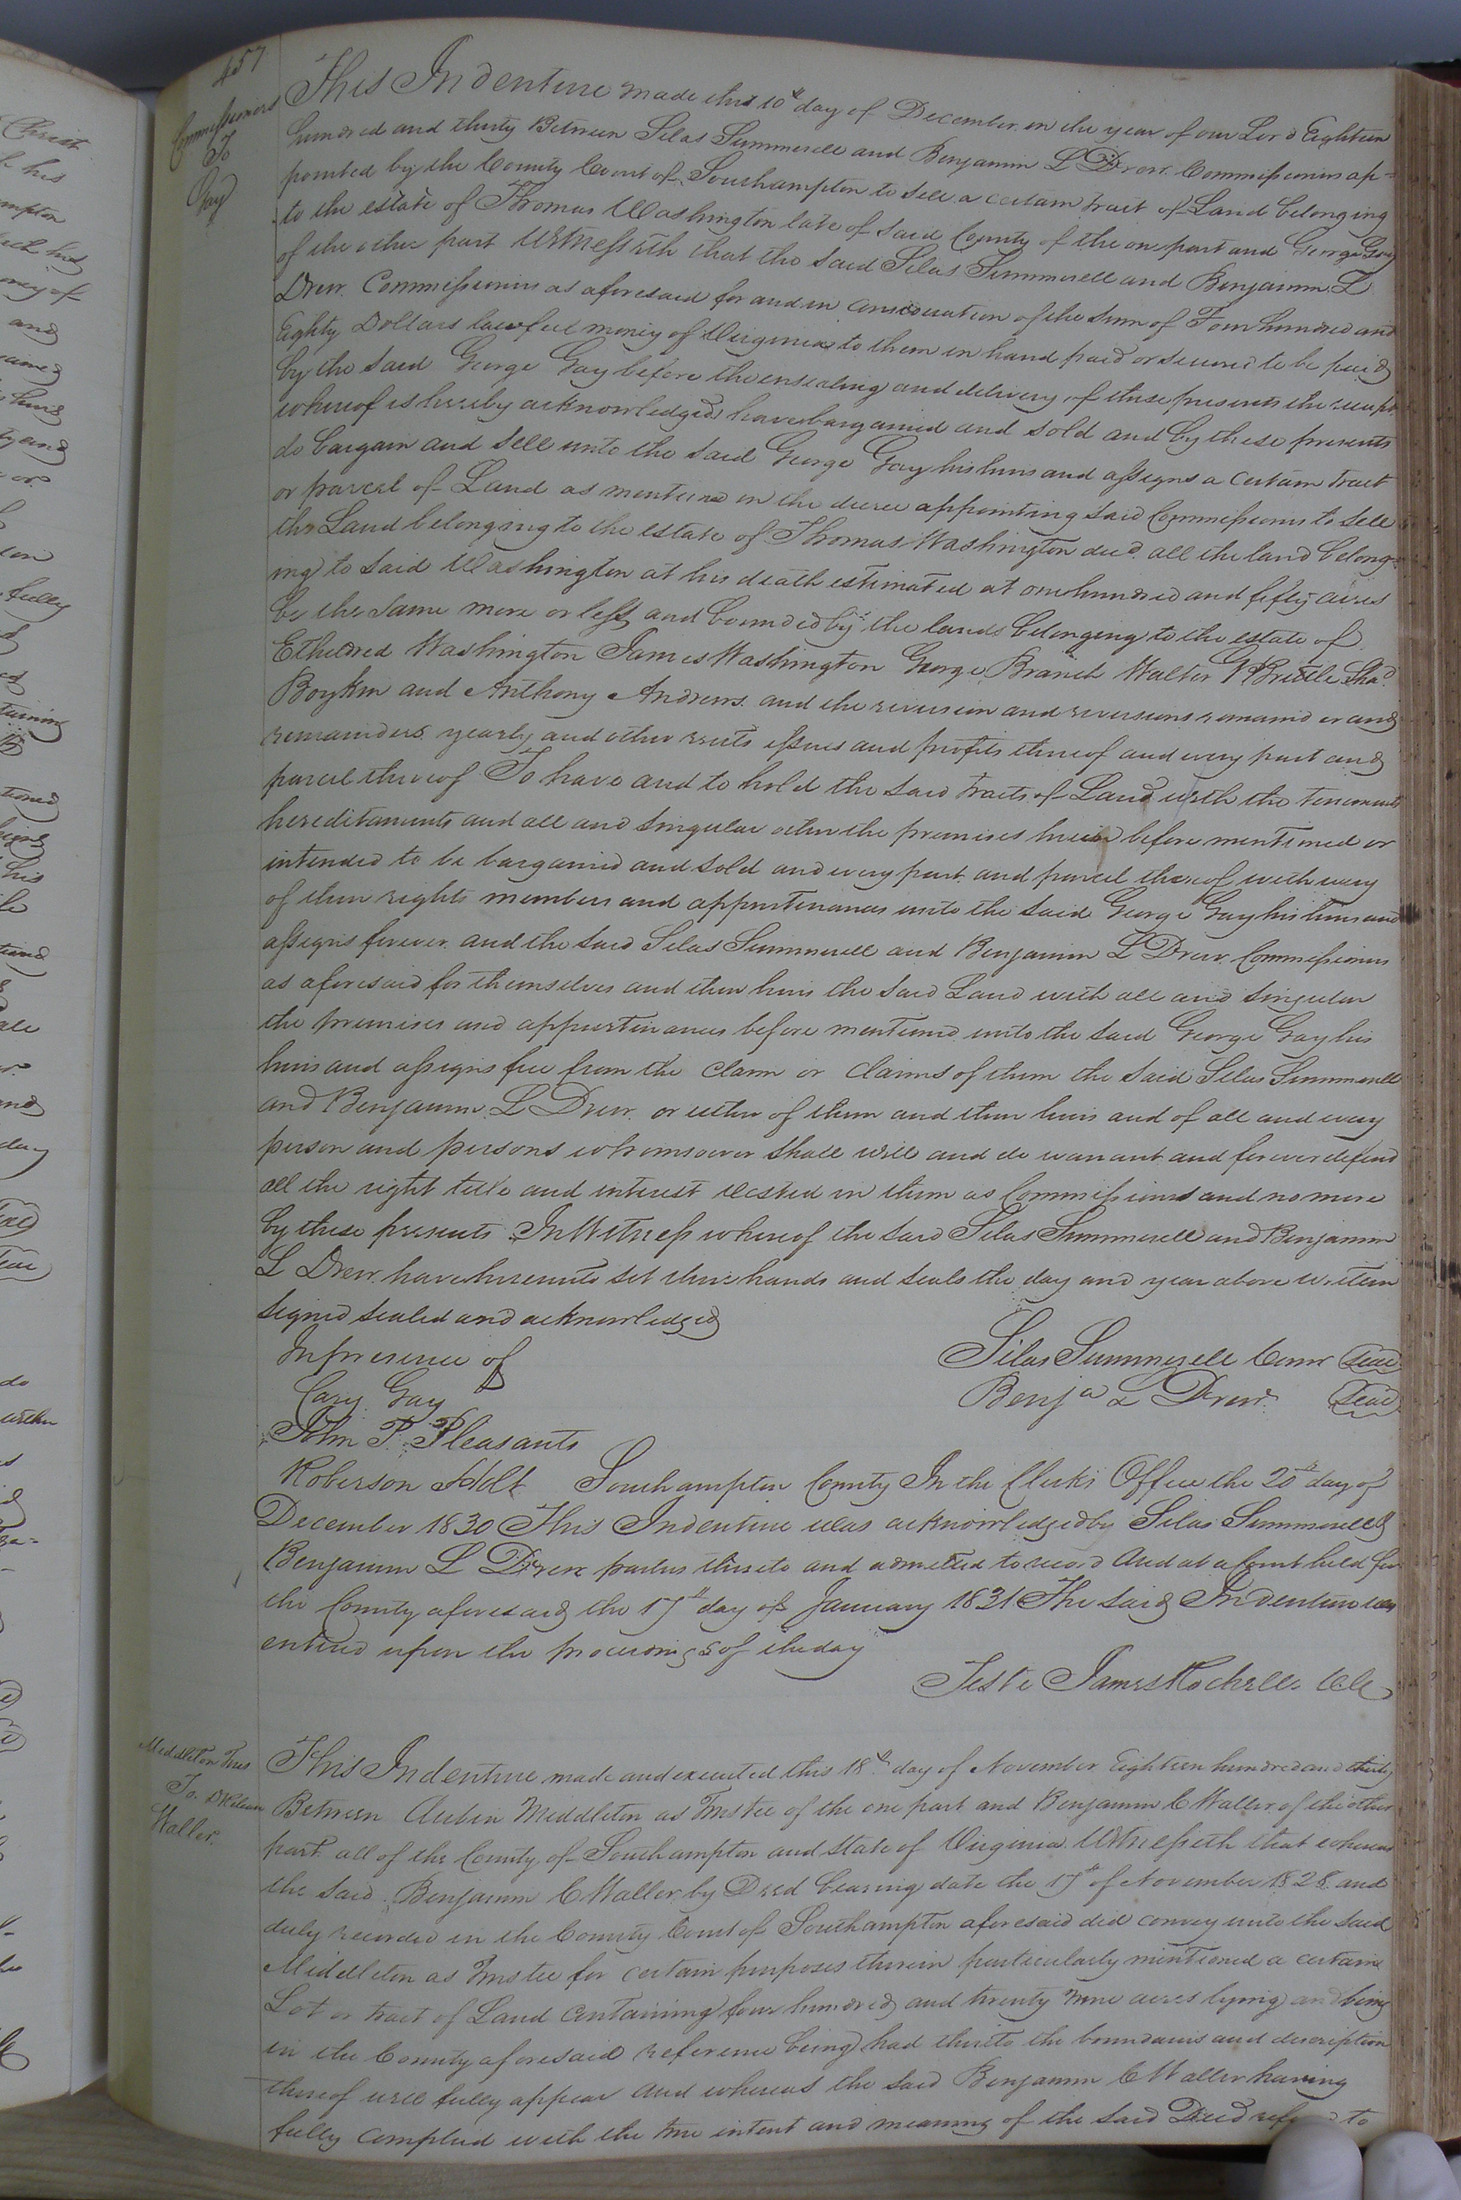 457
Commissioners
To
Gay
This Indenture made this 10th day of December in the year of our Lord Eighteen
hundred and thirty Between Silas Summerell and Benjamin L Drew Commissioners ap-
pointed by the County Court of Southampton to sell a certain tract of Land belonging
to the estate of Thomas Washington late of said County of the one part and George Gay
of the other part Witnesseth that the said Silas Summerell and Benjamin L
Drew Commissioners as aforesaid for and in consideration of the sum of Four hundred and
Eighty Dollars lawful money of Virginia to them in hand paid or secured to be paid
by the said George Gay before the ensealing and delivery of these presents the receipt
whereof is hereby acknowledged have bargained and sold and by these presents
do bargain and sell unto the said George Gay his heirs and assigns a certain tract
or parcel of Land as mentioned in the decree appointing said Commissioners to sell
the Land belonging to the estate of Thomas Washington decd. all the land belong-
ing to said Washington at his death estimated at one hundred and fifty acres
be the same more or less and bounded by the lands belonging to the estate of
Etheldred Washington James Washington George Branch Walter G Brittle
Boykin and Anthony Andrews and the reversion and reversions remainder and
remainders yearly and other rents issues and profits thereof and every part and
parcel thereof To have and to hold the said tracts of Land with the tenements
hereditaments and all and singular other the premises herein before mentioned or
intended to be bargained and sold and every part and parcel thereof with every
of their rights members and appurtenances unto the said George Gay his heirs and
assigns forever and the said Silas Summerell and Benjamin L Drew Commissioners
as aforesaid for themselves and their heirs the said Land with all and singular
the premises and appurtenances before mentioned unto the said George Gay his
heirs and assigns free from the claim or claims of them the said Silas Summerell
and Benjamin L Drew or either of them and their heirs and of all and every
person and persons whomsoever shall will and do warrant and forever defend
all the right title and interest vested in them as Commissioners and no more
by these presents In Witness whereof the said Silas Summerell and Benjamin
L Drew have hereunto set their hands and seals the day and year above written
Signed sealed and acknowledged
In presence of
Silas Summerell Comr Seal
Cary Gay
Benja L Drew Seal
John P. Pleasants
Roberson Holt Southampton County In the Clerks Office the 20th day of
December 1830 This Indenture was acknowledged by Silas Summerell &
Benjamin L Drew parties thereto and admitted to record And at a Court held for
the County aforesaid the 17th day of January 1831 The said Indenture was
entered upon the proceedings of the day
Teste James Rochelle C.C.
Middleton Trus
To
Waller
This Indenture made and executed this 18th day of November Eighteen hundred and thirty
Between Middleton as Trustee of the one part and Benjamin C Waller of the other
part all of the County of Southampton and State of Virginia Witnesseth that whereas
the said Benjamin C Waller by Deed bearing date the 17th of November 1828 and
duly recorded in the County Court of Southampton aforesaid did convey unto the said
Middleton as Trustee for certain purposes therein particularly mentioned a certain
Lot or tract of Land containing four hundred and twenty nine acres lying and being
in the County aforesaid reference being had thereto the boundaries and description
thereof will fully appear And whereas the said Benjamin C Waller having
fully complied with the true intent and meaning of the said Deed to